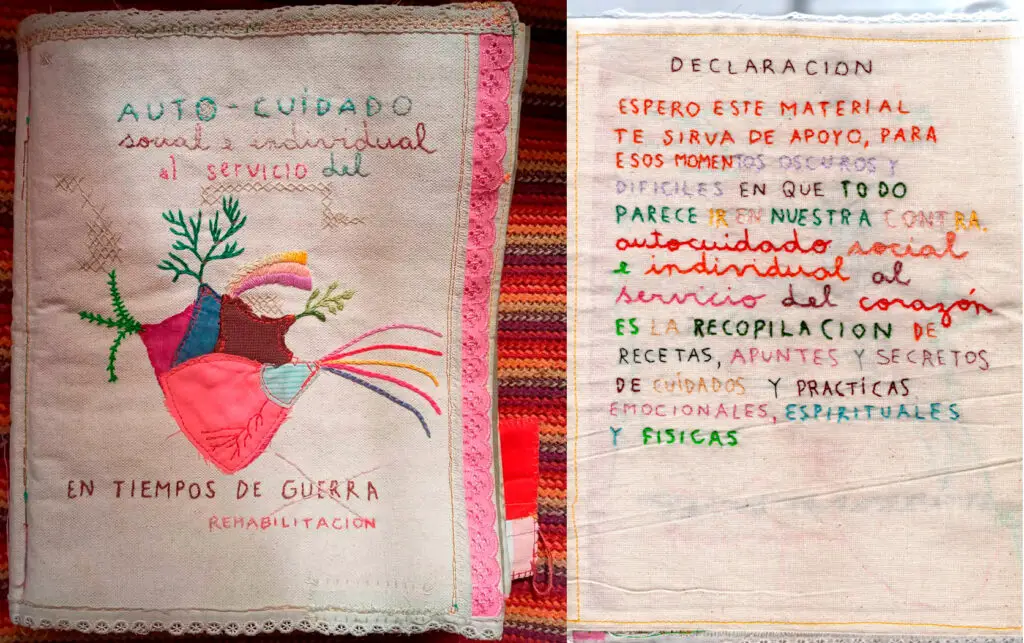 AUTO-CUÍDADO
social e individual
al servicio del
EN TIEMPOS DE GUERRA
REHABILITACIÓN
DECLARACION
ESPERO ESTE MATERIAL
TE SIRVA DE APOYO, PARA
ESOS MOMENTOS OSCUROS Y
DIFICILES EN QUE TODO
PARECE IR EN NUESTRA CONTRA.
autocuidado social
e individual al
servicio del corazón
ES LA RECOPILACION DE
RECETAS, APUNTES Y SECRETOS
DE CUÍDADOS Y PRACTÍCAS
EMOCIONALES, ESPIRITUALES
Y FISICAS